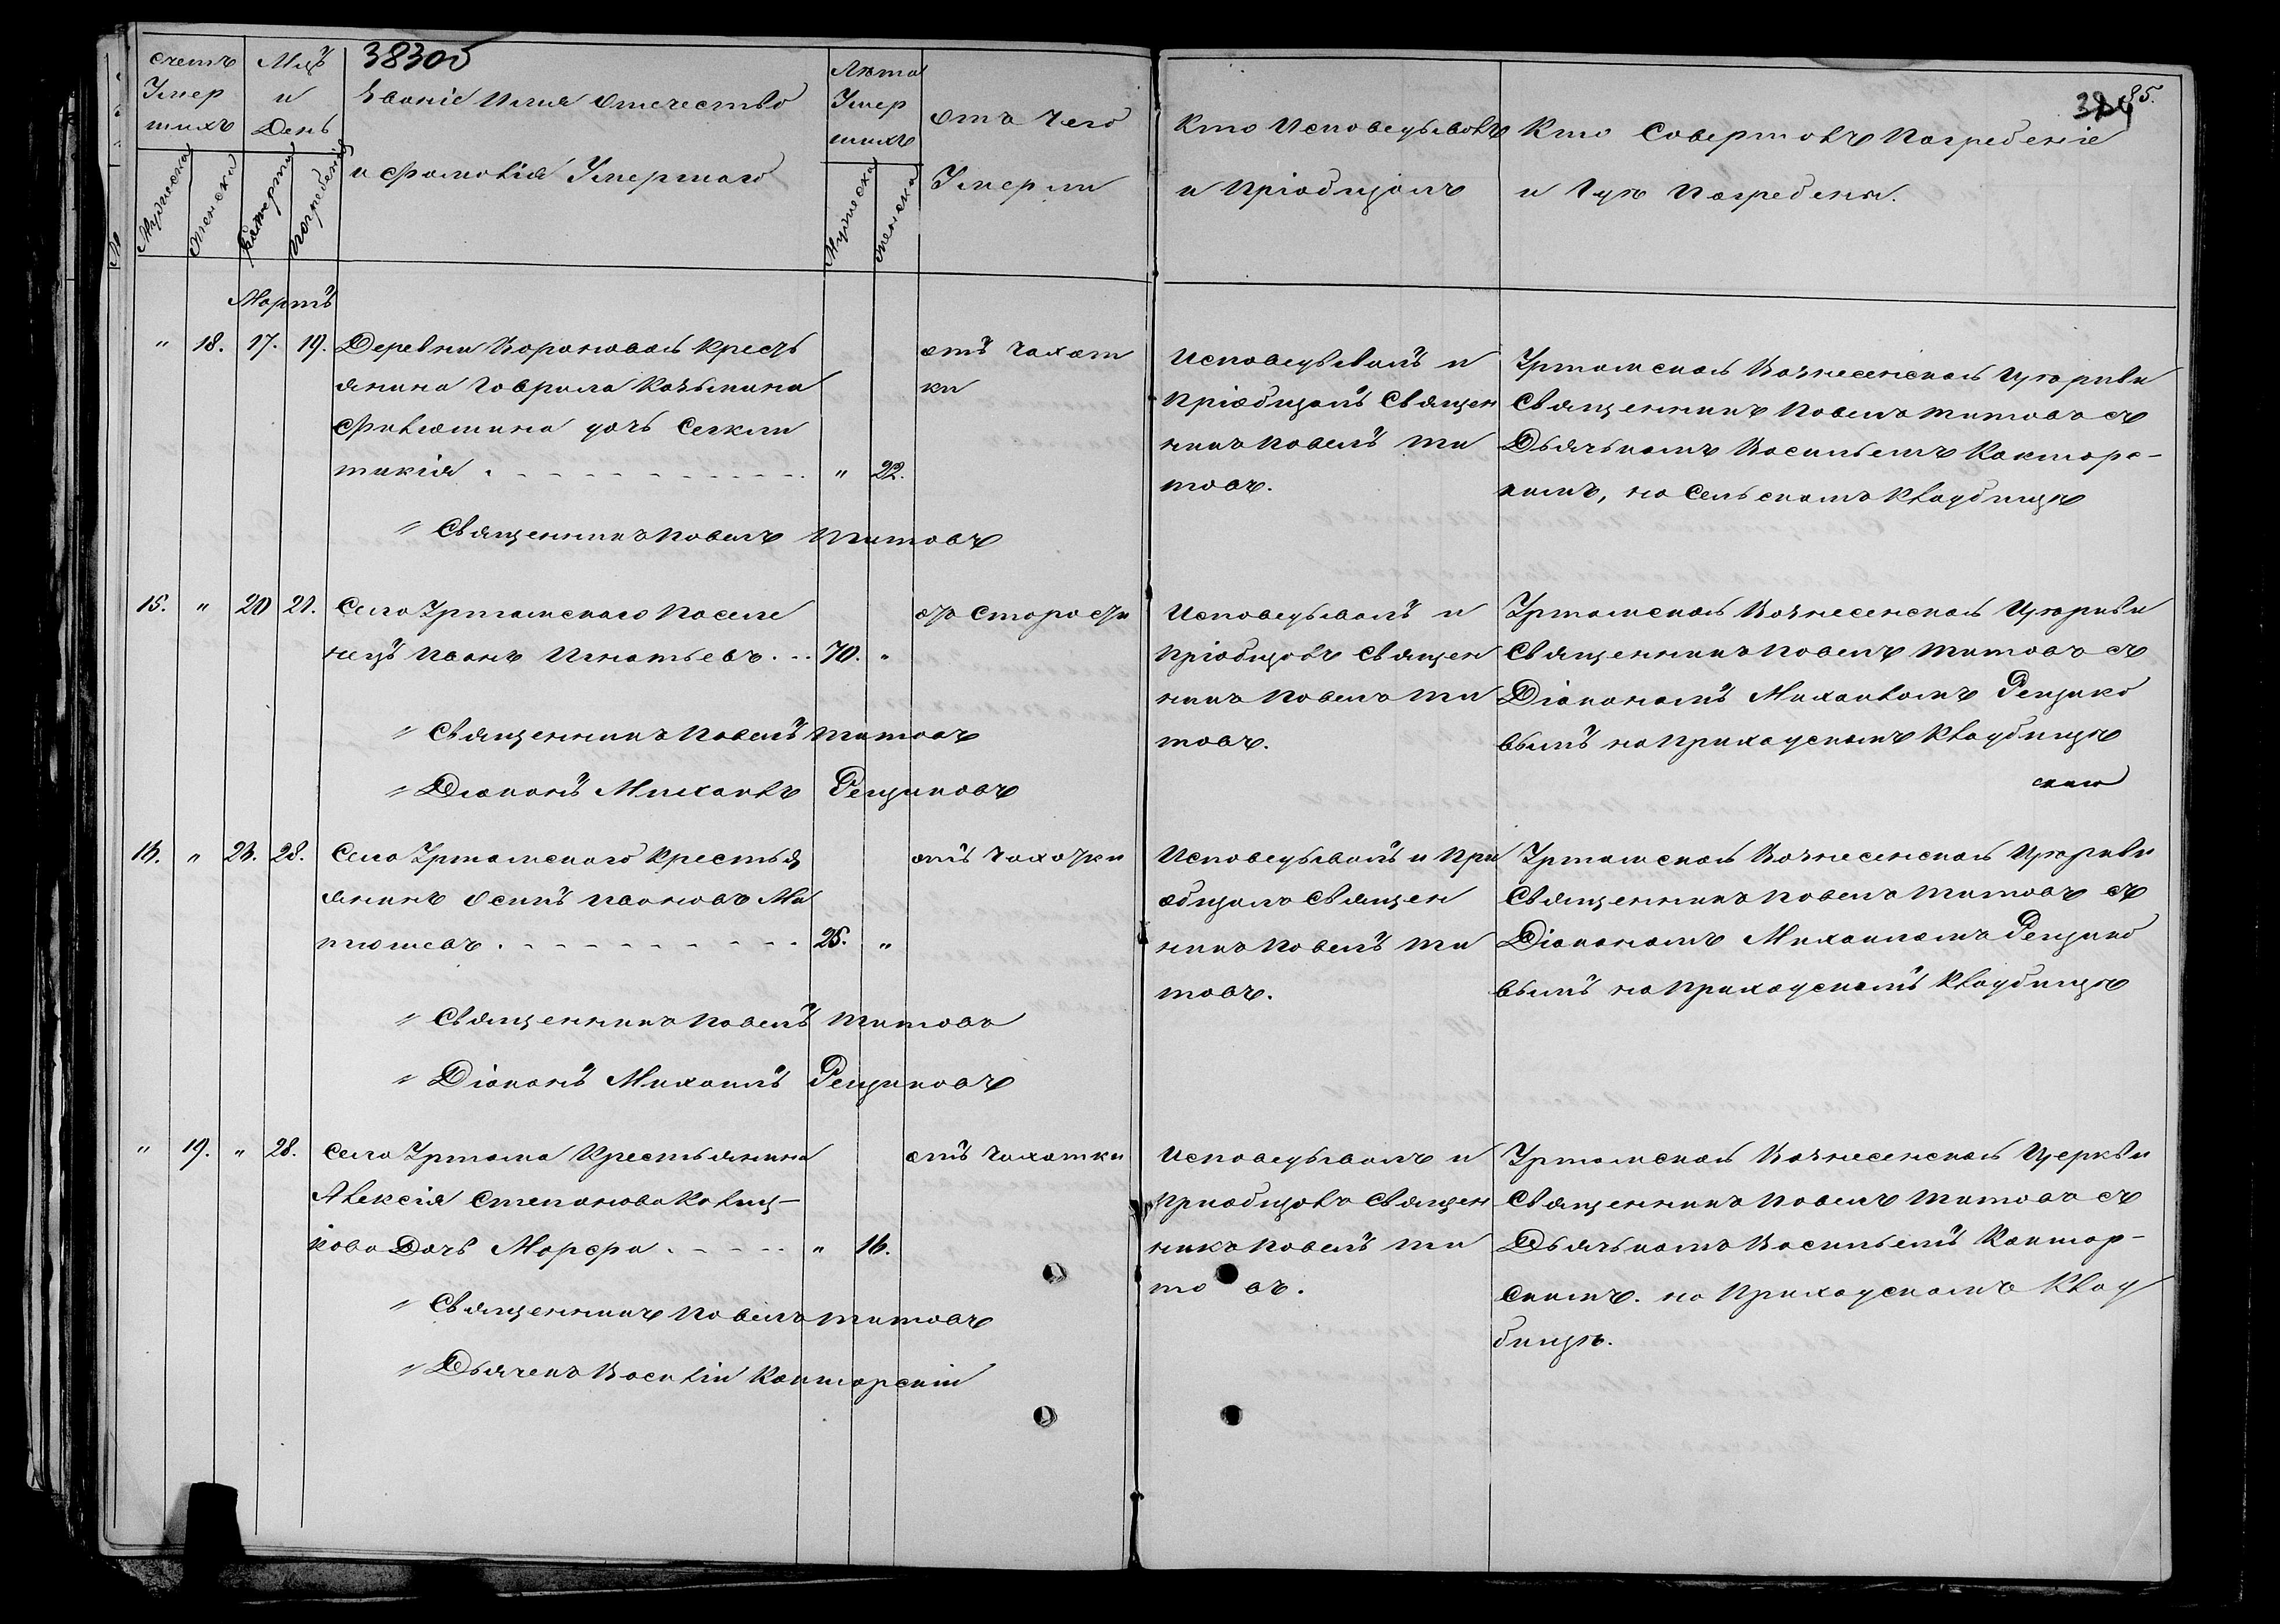 38305
385.
счетъ Умер шихъ
Мцъ и День
Званіе Имя Отечество
и Фамилія Умершаго
Лѣта Умер шихъ
отъ чего
Умерли
Кто Исповедывалъ
и Пріобщалъ
Кто Совершалъ Погребеніе
и Гдѣ Погребены.
Мужеска
Женска
Смерти
Погребенія
Мужеска
женска
Мартъ
" 18. 17. 19. Деревни Вороновой крестъ
янина Гаврила Козьмина
Филюшина дочь Секли
тикія " 22.
отъ чахот
ки
Исповедывалъ и
Пріобщалъ Священ
никъ Павелъ Ти
товъ.
Уртамской Вознесенской Церкви
Священникъ Павелъ Титовъ съ
Дьячкомъ Васильемъ Кантор-
скимъ, на Сельскомъ Кладбищѣ
" Священникъ Павелъ Титовъ
15. " 20 21. Села Уртамскаго Поселе
нецъ Иванъ Игнатьевъ 70. "
отъ старости
Исповедывалъ и
Пріобщалъ Священ
никъ Павелъ Ти
товъ.
Уртамской Вознесенской Церкви
Священникъ Павелъ Титовъ съ
Діакономъ Михаиломъ Рещико
вымъ на Приходскомъ Кладбищѣ
" Священникъ Павелъ Титовъ
" Діаконъ Михаилъ Рещиковъ
16. " 26. 28. Села Уртамскаго Крестья
янинъ Осипъ Ивановъ Ми
тюшевъ 25. "
отъ чахотки
Исповедывалъ и При
общалъ Священ
никъ Павелъ Ти
товъ.
Уртамской Вознесенской Церкви
Священникъ Павелъ Титовъ съ
Діакономъ Михаиломъ Рещико
вымъ на Приходскомъ Кладбищѣ
" Священникъ Павелъ Титовъ
" Діаконъ Михаилъ Рещиковъ
" 19. " 28. Села Уртама Крестьянина
Алексія Степанова
кова Дочь Марфа " 16.
отъ чахотки
Исповедывалъ и
Приобщалъ Священ
никъ Павелъ Ти
товъ.
Уртамской Вознесенской Церкви
Священникъ Павелъ Титовъ съ
Дьячкомъ Васильемъ Кантор-
скимъ. на Приходскомъ Клад
бищѣ.
" Священникъ Павелъ Титовъ
" Дьячекъ Василій Канторскій